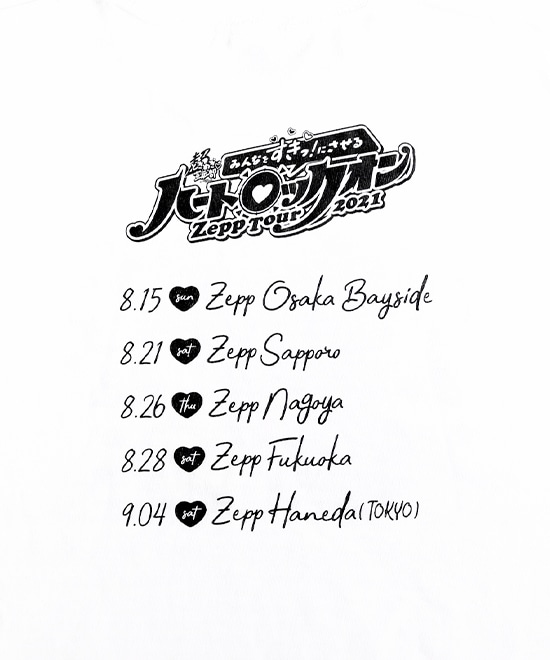 みんなをすきっ!にさせる
ハートロックオン
Zepp Tour 2021
8.15 sun Zepp Osaka Bayside
8.21 sat Zepp Sapporo
8.26 thu Zepp Nagoya
8.28 sat Zepp Fukuoka
9.04 sat Zepp Haneda(TOKYO)